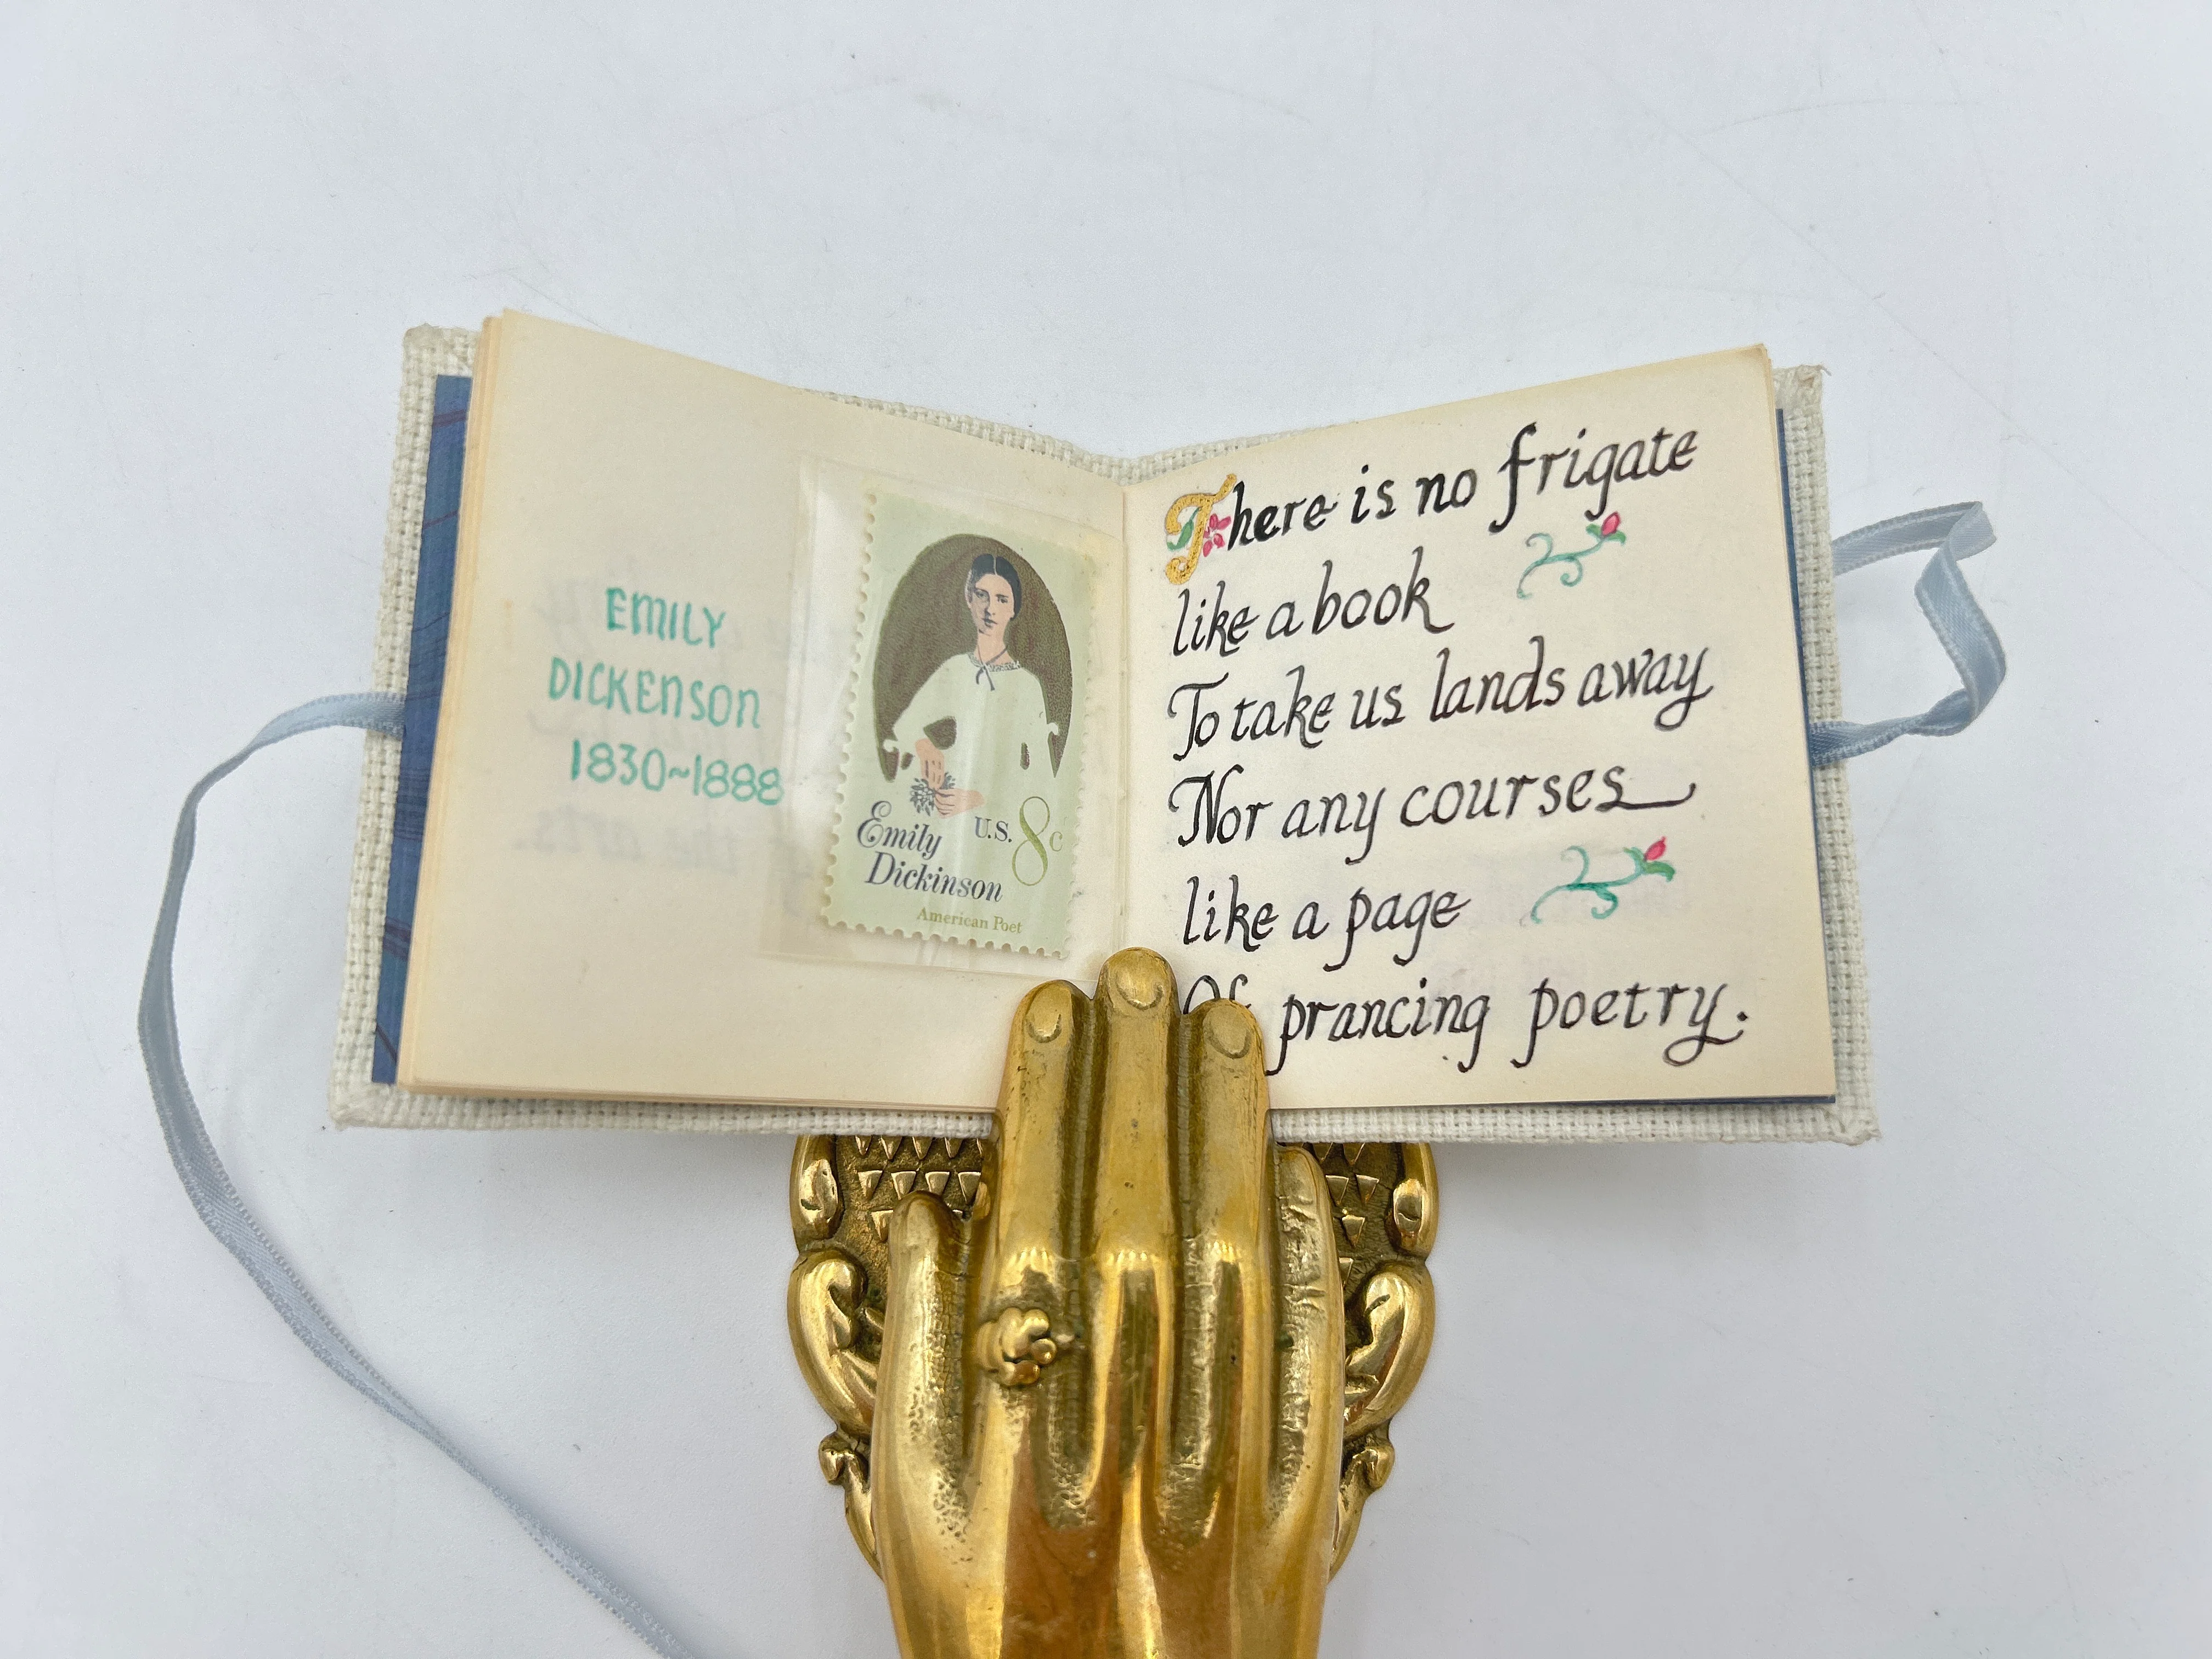 EMILY
DICKENSON
1830~1888
Emily
Dickinson
U.S. 8c
American Poet
There is no frigate
like a book
To take us lands away
Nor any courses
like a page
Of prancing poetry.